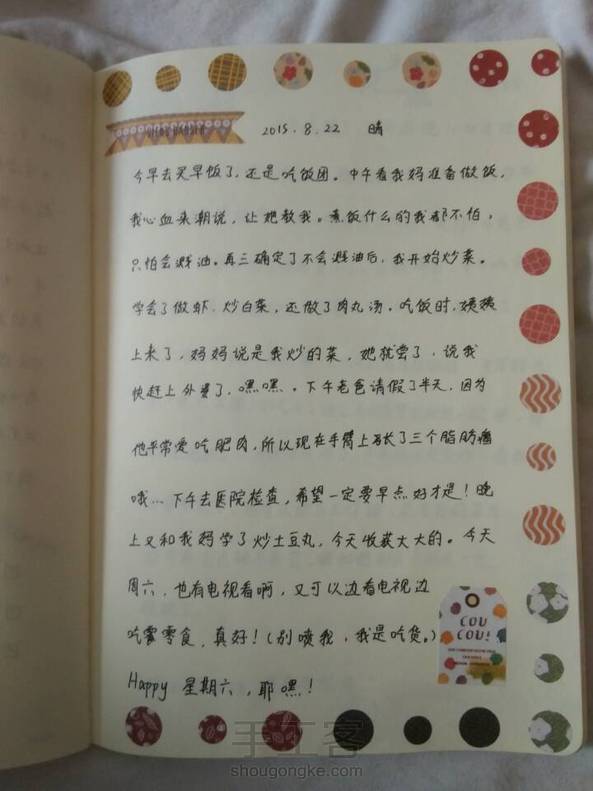 2015.8.22 晴
今早去买早饭了，还是吃饭团。中午看我妈准备做饭，
我心血来潮说，让她教我。煮饭什么的我都不怕，
只怕会溅油。再三确定了不会溅油后，我开始炒菜。
学会了做虾，炒白菜，还做了肉丸汤。吃饭时，姨姨
上来了，妈妈说是我炒的菜，她就尝了，说我
快赶上外婆了，嘿嘿。下午老爸请假了半天，因为
他平常爱吃肥肉，所以现在手臂上长了三个脂肪瘤
哦…下午去医院检查，希望一定要早点好才是！晚
上又和我妈学了炒土豆丸，今天收获大大的。今天
周六，也有电视看啊，又可以边看电视边
吃零食，真好！（别喷我，我是吃货。）
Happy 星期六，耶嘿！
COU
COU!
手工客
shougongke.com